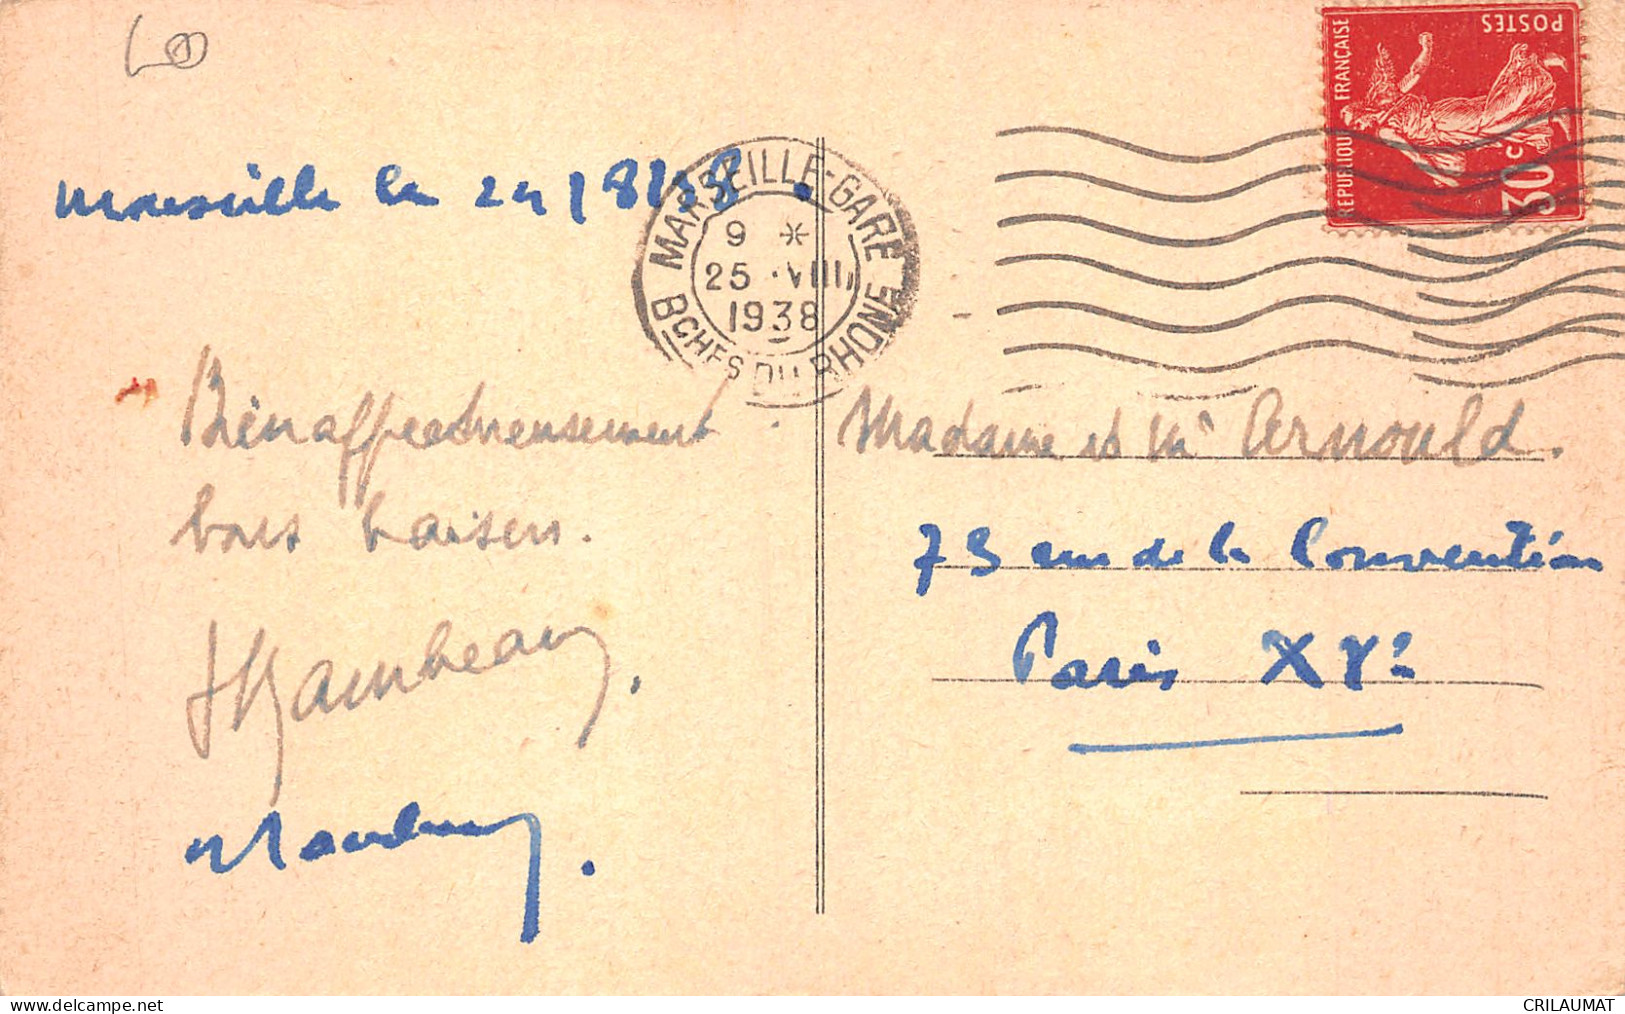 Marseille le 24/8/38.
MARSEILLE-GARE
9 *
25 ·VIII
1938
Bches DU RHONE
REPUBLIQUE FRANÇAISE
POSTES
30c
Bien affectueusement
bons baisers.
Madame et Mr Arnould.
73 rue de la Convention
Paris XVe
CRILAUMAT